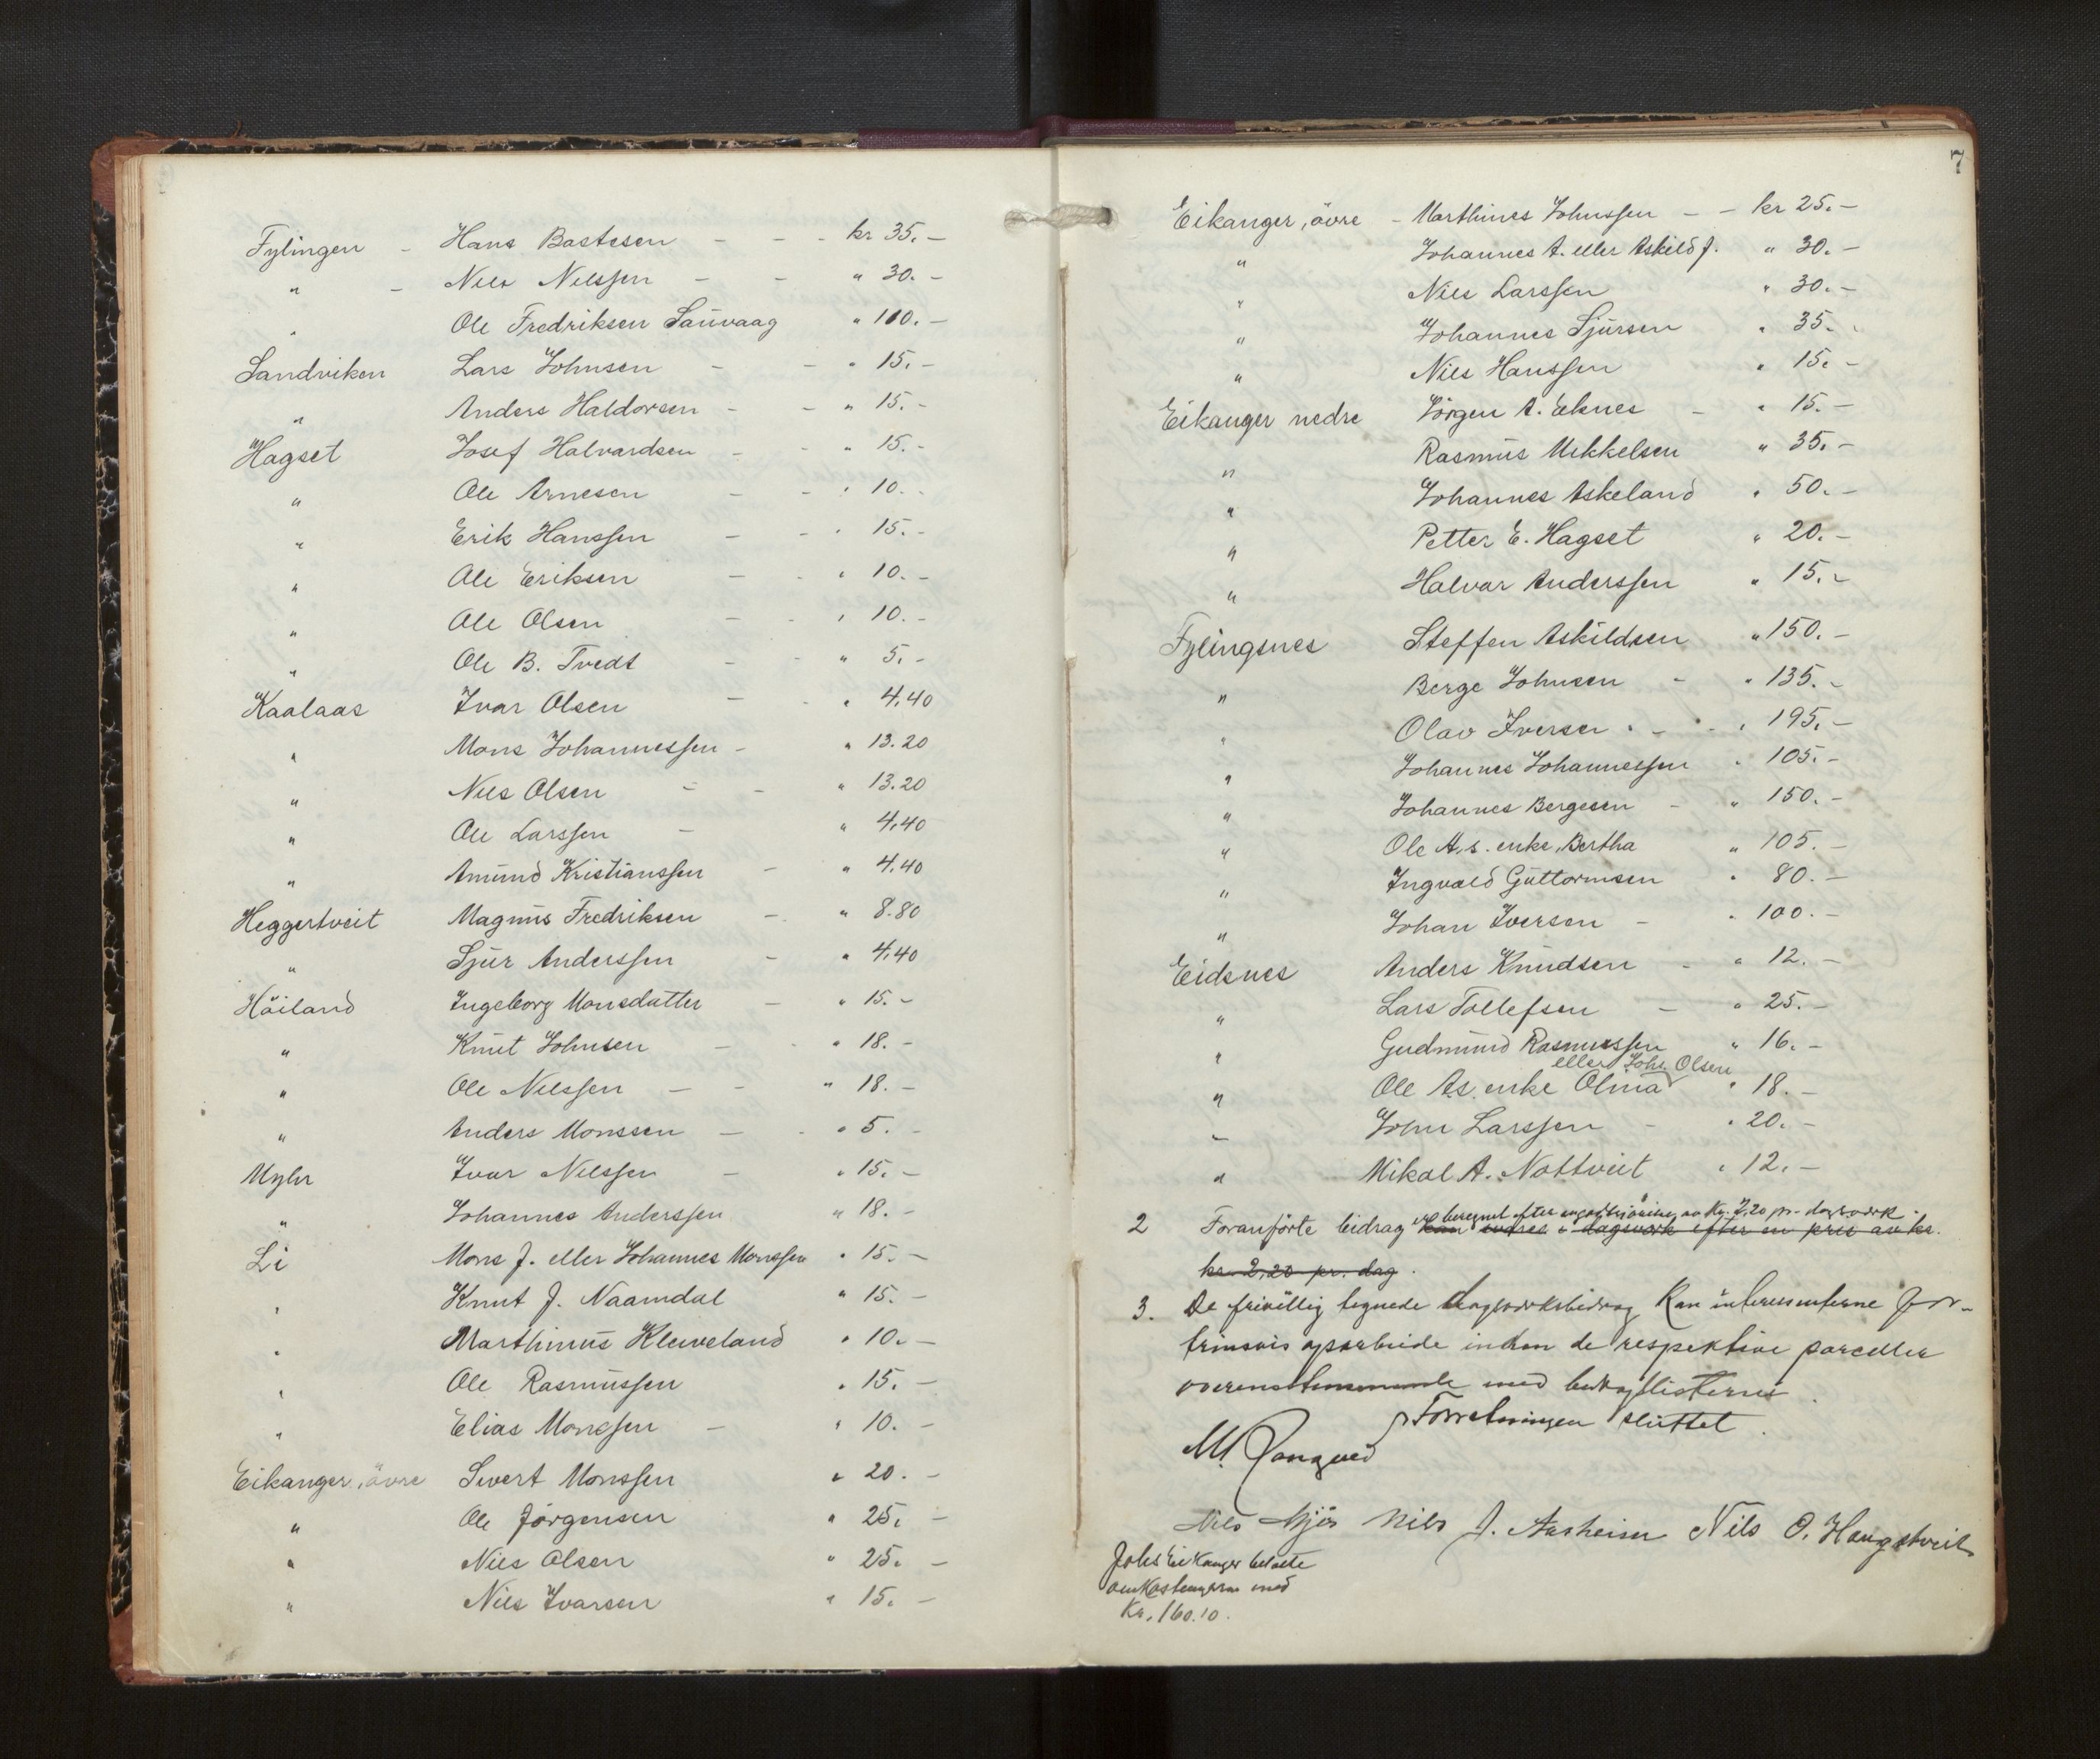 Fylingen - Hans Bastesen - - - kr 35.-
" - Nils Nilssen - - " 30.-
" Ole Fredriksen Sauvaag " 100.-
Sandviken Lars Johnsen - - " 15.-
" Anders Haldorsen - - " 15.-
Hagset Josef Halvardsen - - " 15.-
" Ole Arnesen - - " 10.-
" Erik Hanssen - - " 15.-
" Ole Eriksen - - " 10.-
" Ole Olsen - - " 10.-
" Ole B. Tvedt - - " 5.-
Kaalaas Ivar Olsen - - " 4,40
" Mons Johannessen - " 13.20
" Nils Olsen - - " 13.20
" Ole Larssen - " 4,40
" Amund Kristianssen - " 4,40
Heggertveit Magnus Fredriksen - " 8.80
" Sjur Anderssen - " 4,40
Höiland Ingeborg Monsdatter - " 15.-
" Knut Johnsen - - " 18.-
" Ole Nilssen - - " 18.-
" Anders Monssen - - " 5.-
Myhr Ivar Nilssen - " 15.-
" Johannes Anderssen " 18.-
Li Mons J. eller Johannes Monssen " 15.-
" Knut J. Naamdal " 15.-
" Marthinus Kleiveland " 10.-
" Ole Rasmussen " 15.-
" Elias Monssen - " 10.-
Eikanger, övre Sivert Monssen " 20.-
" Ole Jörgensen " 25.-
" Nils Olsen " 25.-
" Nils Ivarsen " 15.-
7
Eikanger, övre - Marthines Johnssen - - kr 25.-
" Johannes A. eller Askild J. " 30.-
" Nils Larssen " 30.-
" Johannes Sjursen " 35.-
" Nils Hanssen " 15.-
Eikanger nedre Jörgen A. Eknes - " 15.-
" Rasmus Mikkelsen " 35.-
" Johannes Askeland " 50.-
" Petter E. Hagset " 20.-
" Halvar Anderssen " 15.-
Fylingsnes Steffen Askildsen " 150.-
" Berge Johnsen - " 135.-
" Olav Iversen - - " 195.-
" Johannes Johannessen " 105.-
" Johannes Bergesen - " 150.-
" Ole A.s. enke, Bertha " 105.-
" Ingvald Guttormsen " 80.-
" Johan Iversen - " 100.-
Eidsnes Anders Knudsen - " 12.-
" Lars Tollefsen - " 25.-
" Gudmund Rasmussen " 16.-
eller Johs Olsen
" Ole As. enke Olina " 18.-
" John Larssen - " 20.-
" Mikal A. Nottveit " 12.-
er beregnet efter en av Kr. 2,20 pr. dagsverk.
2 Foranförte bidrag kan svares i dagsverk efter en pris av kr.
kr. 2,20 pr. dag.
3. De frivillig tegnede dagsverksbidrag kan interessenterne for-
trinsvis oparbeide inden de respektive parceller
overensstemmende med bidragslisterne.
Forretningen sluttet.
M.
Nils Mjøs Nils J. Aasheim Nils O. Haugstveit
Johs Eikanger betalte
omkostningerne med
Kr. 160.10.